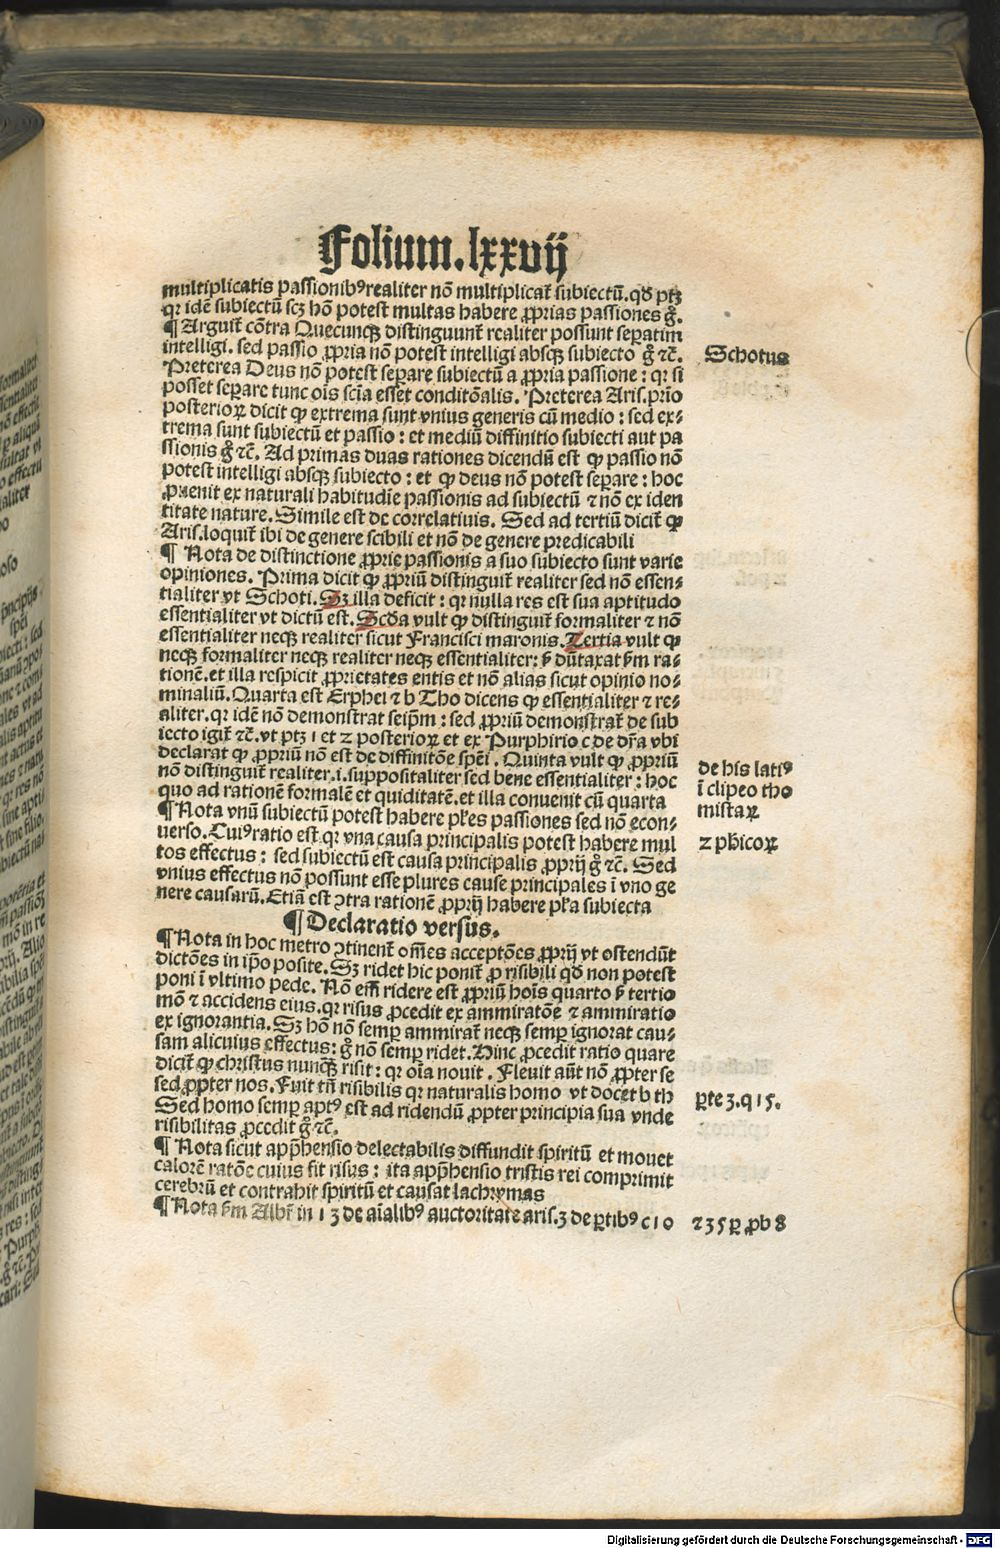 Folium.lxxvij
multiplicatis passionibꝰ realiter nõ multiplicat̃ subiectũ.qđ ptꝫ
qꝛ idẽ subiectũ scꝫ hõ potest multas habere ꝓprias passiones g̃.
¶ Arguit̃ cõtra Quecunqꝫ distinguunt̃ realiter possunt seꝑatim
intelligi. sed passio ꝓpria nõ potest intelligi absqꝫ subiecto g̃ ⁊c̃.
Schotus
Preterea Deus nõ potest seꝑare subiectũ a ꝓpria passione : qꝛ si
posset seꝑare tunc oĩs scĩa esset conditõnalis. Preterea Aris.pr̃io
posterioꝝ dicit ꝙ extrema sunt vnius generis cũ medio : sed ex-
trema sunt subiectũ et passio : et mediũ diffinitio subiecti aut pa
ssionis g̃ ⁊c̃. Ad primas duas rationes dicendũ est ꝙ passio nõ
potest intelligi absqꝫ subiecto : et ꝙ deus nõ potest seꝑare : hoc
ꝓuenit ex naturali habitudĩe passionis ad subiectũ ⁊ nõ ex iden
titate nature. Simile est de correlatiuis. Sed ad tertiũ dicit̃ ꝙ
Aris.loquit̃ ibi de genere scibili et nõ de genere predicabili
¶ Nota de distinctione ꝓprie passionis a suo subiecto sunt varie
opiniones. Prima dicit ꝙ ꝓpriũ distinguit̃ realiter sed nõ essen-
tialiter vt Schoti. Sꝫ illa deficit : qꝛ nulla res est sua aptitudo
essentialiter vt dictũ est. Scđa vult ꝙ distinguit̃ formaliter ⁊ nõ
essentialiter neqꝫ realiter sicut Francisci maronis. Tertia vult ꝙ
neqꝫ formaliter neqꝫ realiter neqꝫ essentialiter: ẜ dũtaxat ẜm ra-
tionẽ.et illa respicit ꝓprietates entis et nõ alias sicut opinio no-
minaliũ. Quarta est Erphei ⁊ b Tho dicens ꝙ essentialiter ⁊ re-
aliter.qꝛ idẽ nõ demonstrat seip̃m : sed ꝓpriũ demonstrat̃ de sub
iecto igit̃ ⁊c̃. vt ptꝫ 1 et 2 posterioꝝ et ex Purphirio c de dr̃a vbi
declarat ꝙ ꝓpriũ nõ est de diffinitõe spẽi. Quinta vult ꝙ ꝓpriũ
nõ distinguit̃ realiter.i.suppositaliter sed bene essentialiter : hoc
quo ad rationẽ formalẽ et quiditatẽ.et illa conuenit cũ quarta
de his latiꝰ
ĩ clipeo tho
mistaꝝ
¶ Nota vnũ subiectũ potest habere pl̃es passiones sed nõ econ-
uerso. Cuiꝰ ratio est qꝛ vna causa principalis potest habere mul
2 phicoꝝ
tos effectus : sed subiectũ est causa principalis ꝓprij g̃ ⁊c̃. Sed
vnius effectus nõ possunt esse plures cause principales ĩ vno ge
nere causarũ. Etiã est ꝯtra rationẽ ꝓprij habere pl̃a subiecta
¶ Declaratio versus.
¶ Nota in hoc metro ꝯtinent̃ om̃es acceptões ꝓprij vt ostendũt
dictões in ip̃o posite. Sꝫ ridet hic ponit̃ ꝓ risibili qđ non potest
poni ĩ vltimo pede. Nõ em̃ ridere est ꝓpriũ hoĩs quarto ẜ tertio
mõ ⁊ accidens eius.qꝛ risus ꝓcedit ex ammiratõe ⁊ ammiratio
ex ignorantia. Sꝫ hõ nõ semꝑ ammirat̃ neqꝫ semꝑ ignorat cau-
sam alicuius effectus: g̃ nõ semꝑ ridet. Hinc ꝓcedit ratio quare
dicit̃ ꝙ christus nunqꝫ risit : qꝛ oĩa nouit. Fleuit aũt nõ ꝓpter se
sed ꝓpter nos. Fuit tñ risibilis qꝛ naturalis homo vt docet b th
ꝑte 3.q 15.
Sed homo semꝑ aptꝰ est ad ridendũ ꝓpter principia sua vnde
risibilitas ꝓcedit g̃ ⁊c̃.
¶ Nota sicut app̃hensio delectabilis diffundit spiritũ et mouet
calorẽ ratõe cuius fit risus : ita app̃hensio tristis rei comprimit
cerebrũ et contrahit spiritũ et causat lachrymas
¶ Nota ẜm Albt̃ in 13 de aĩalibꝰ auctoritate aris.3 de ꝑtibꝰ c 10
⁊ 35 ꝑ ꝓb 8
Digitalisierung gefördert durch die Deutsche Forschungsgemeinschaft - DFG